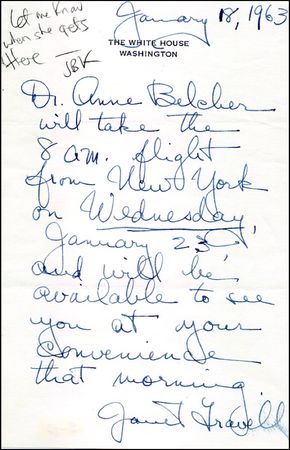 Let me know
when she gets
Here
JBK
January 18, 1963
THE WHITE HOUSE
WASHINGTON
Dr. Anne Belcher
will take the
8 a.m. flight
from New York
on Wednesday,
January 23,
and will be
available to see
you at your
convenience
that morning.
Janet Travell